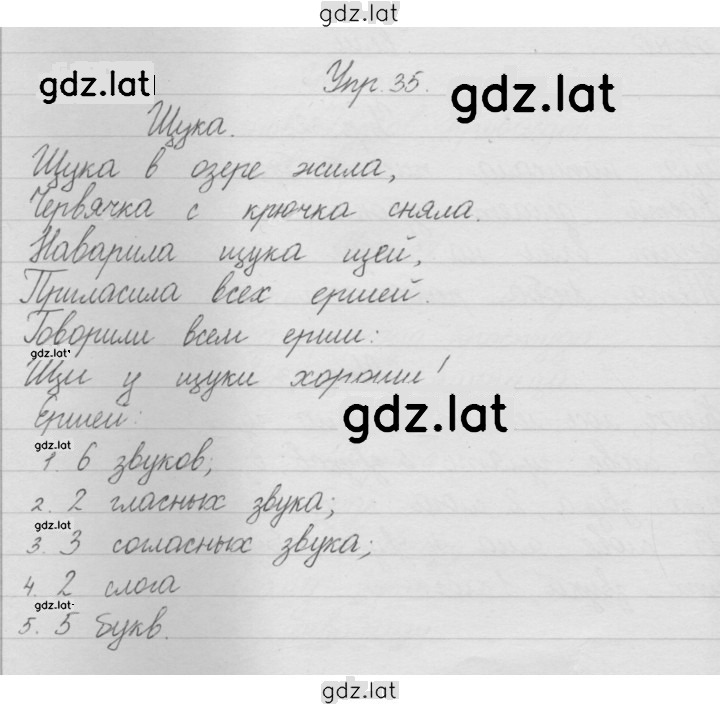 gdz.lat
Упр. 35.
gdz.lat
gdz.lat
Щука.
Щука в озере жила,
Червячка с крючка сняла.
Наварила щука щей,
Пригласила всех ершей.
Говорили всем ерши:
gdz.lat
Щи у щуки хороши!
gdz.lat
Ершей:
gdz.lat
1. 6 звуков;
2. 2 гласных звука;
gdz.lat
3. 3 согласных звука;
4. 2 слога
gdz.lat
5. 5 букв.
gdz.lat